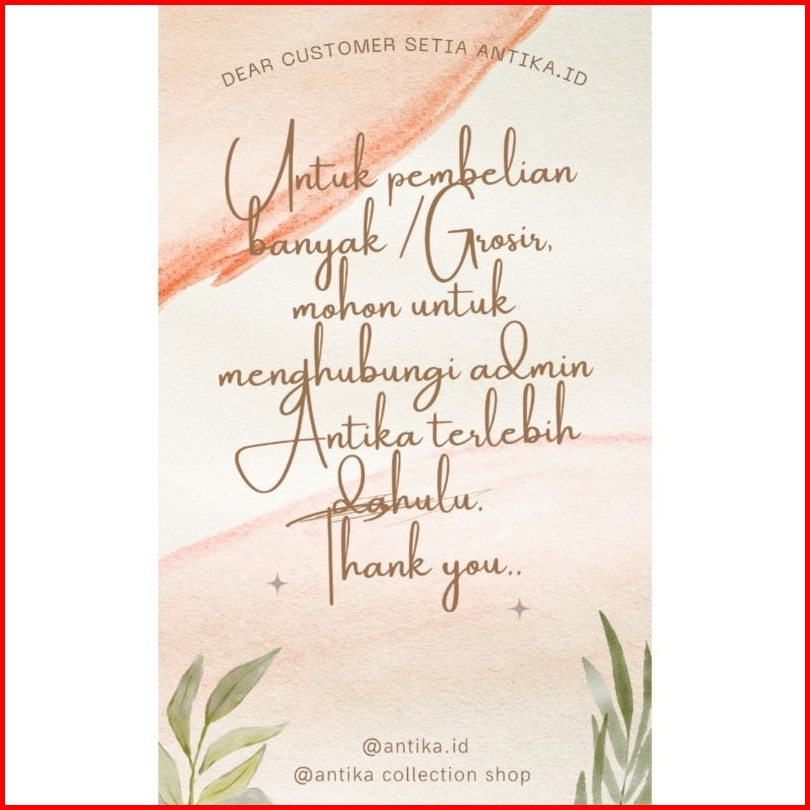 DEAR CUSTOMER SETIA ANTIKA.ID
Untuk pembelian
banyak /Grosir,
mohon untuk
menghubungi admin
Antika terlebih
dahulu.
Thank you..
@antika.id
@antika collection shop